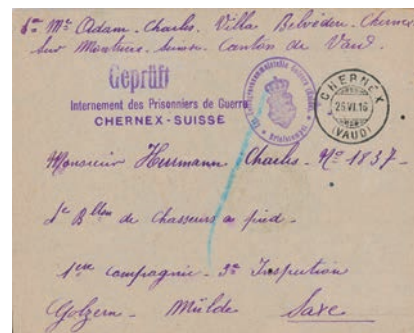 Mr Adam-Charles. Villa Belvéder. Chernex
sur Montreux. Suisse. Canton de Vaud.
Geprüft
Internement des Prisonniers de Guerre
CHERNEX-SUISSE
CHERNEX
26 VI.16
(VAUD)
Monsieur Herrmann Charles. No 1837-
Bllon de Chasseurs à pied-
1ère Compagnie-3e Inspection
Golzern-Mülde Saxe